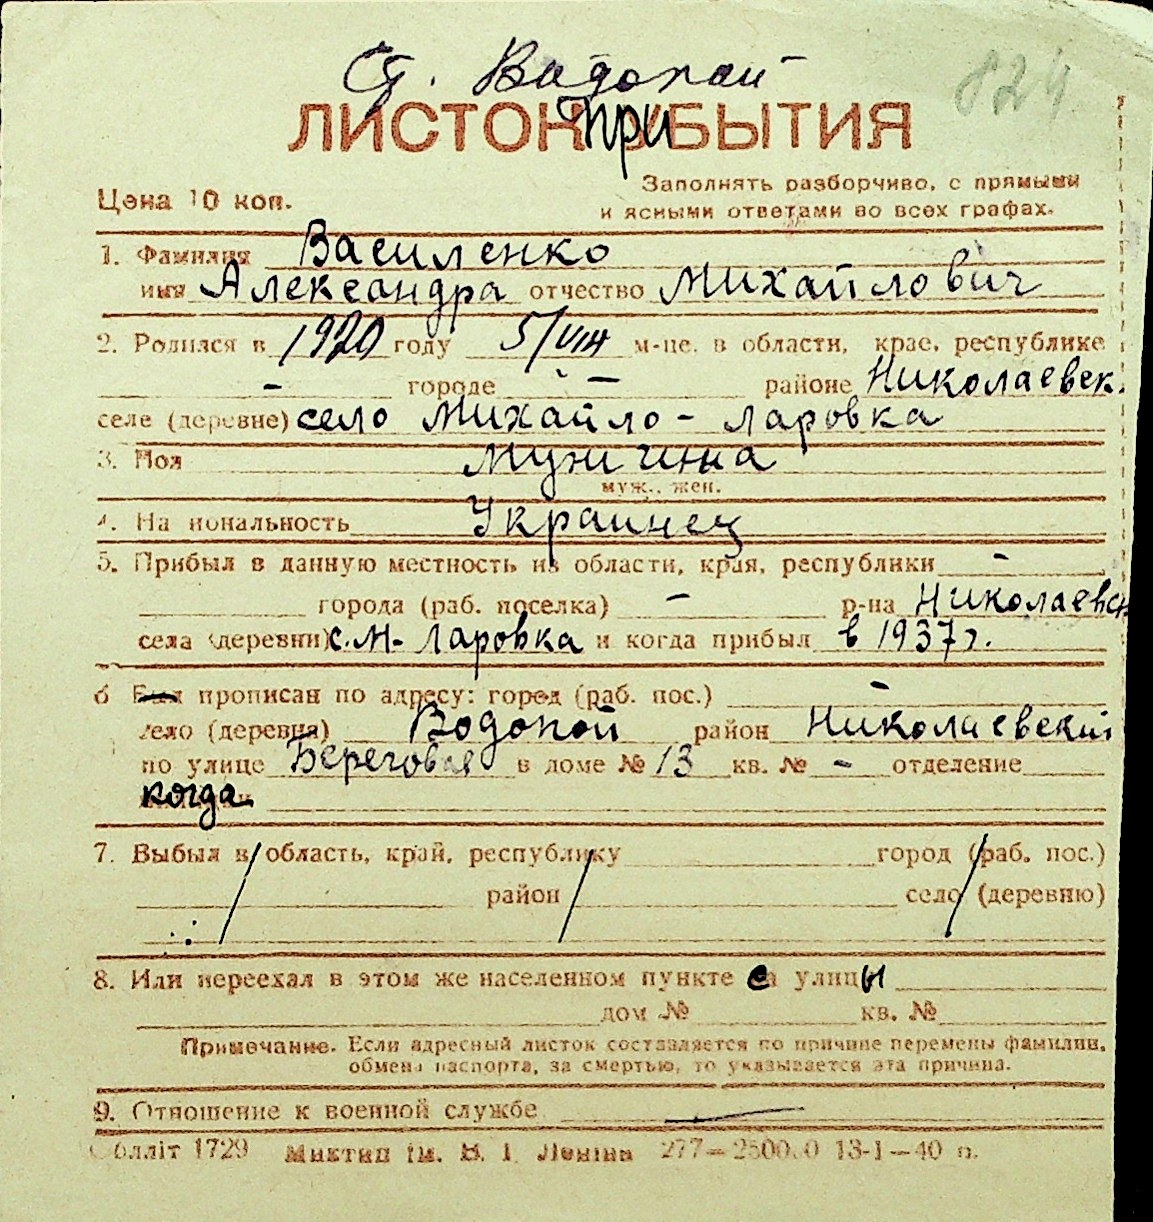 Ст. Водопой
824
ЛИСТОК ПРИБЫТИЯ
Цена 10 коп.
Заполнять разборчиво, с прямыми
и ясными ответами во всех графах.
1. Фамилия Василенко
имя Александра отчество Михайлович
2. Родился в 1920 году 5/VIII м-це. в области, крае, республике
- городе - районе Николаевск.
селе (деревне) село Михайло-Ларовка
3. Пол Мужчина
муж., жен.
4. Национальность Украинец
5. Прибыл в данную местность из области, края, республики -
города (раб. поселка) - р-на Николаевск
села (деревни) с. М-Ларовка и когда прибыл в 1937 г.
6 Был прописан по адресу: город (раб. пос.) -
село (деревня) Водопой район Николаевский
по улице Береговая в доме № 13 кв. № - отделение
когда
7. Выбыл в область, край, республику город (раб. пос.)
район село (деревню)
8. Или переехал в этом же населенном пункте с улицы
дом № кв. №
Примечание. Если адресный листок составляется по причине перемены фамилии,
обмена паспорта, за смертью, то указывается эта причина.
9. Отношение к военной службе
Облліт 1729 Миктип ім. В. І. Леніна 277— 13-1—40 п.